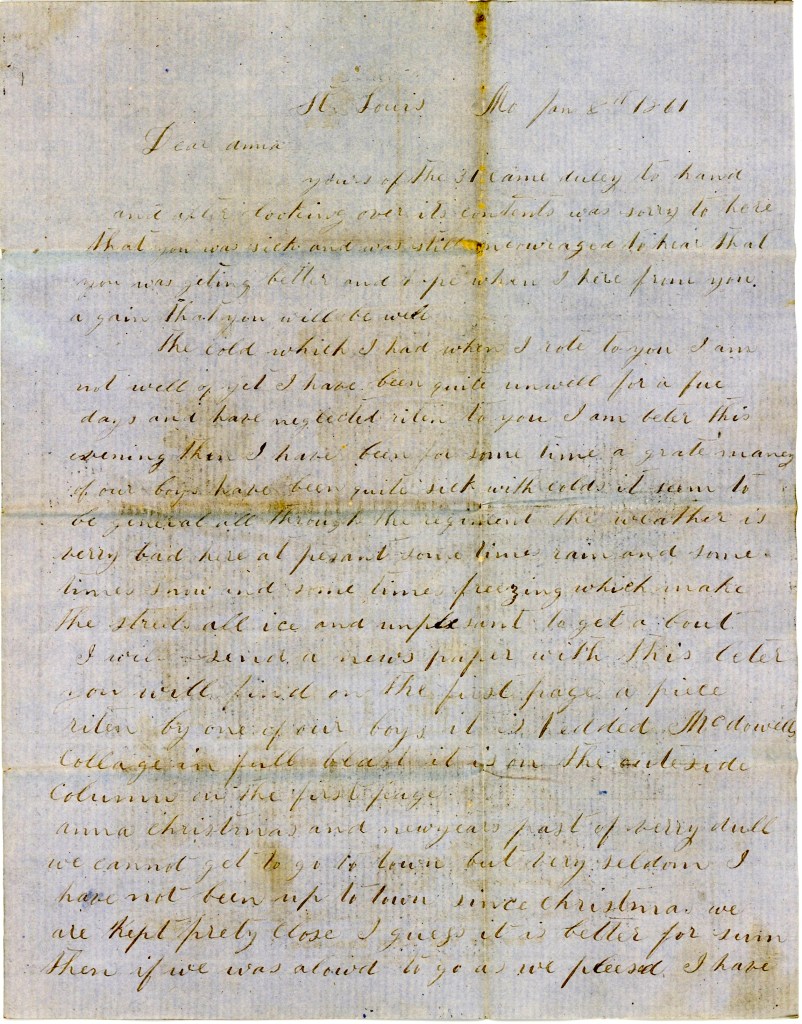 St. Louis Mo Jan 8th 1861
Dear anna
yours of the 31 came duley to hand
and after looking over its contents was sorry to here
that you was sick and was still encouraged to hear that
you was geting better and hope when I here from you
a gain that you will be well
The cold which I had when I rote to you I am
not well of yet I have been quite unwell for a fue
days and have neglected riten to you I am beter this
evening then I have been for some time a grate maney
of our boys have been quite sick with colds it seem to
be general all through the regiment the weather is
verry bad here at pesant some times rain and some
times snow and some times freezing which make
the streets all ice and unplesant to get a bout
I will send a news paper with this leter
you will find on the first page a piece
riten by one of our boys it is hedded McDowells
Collage in full blast it is on the outeside
Column on the first page
anna christmas and newyears past of verry dull
we cannot get to go to town but very seldom I
have not been up to town since christmas we
are Kept prety close I guess it is better for sum
then if we was alowd to go as we pleesd I have